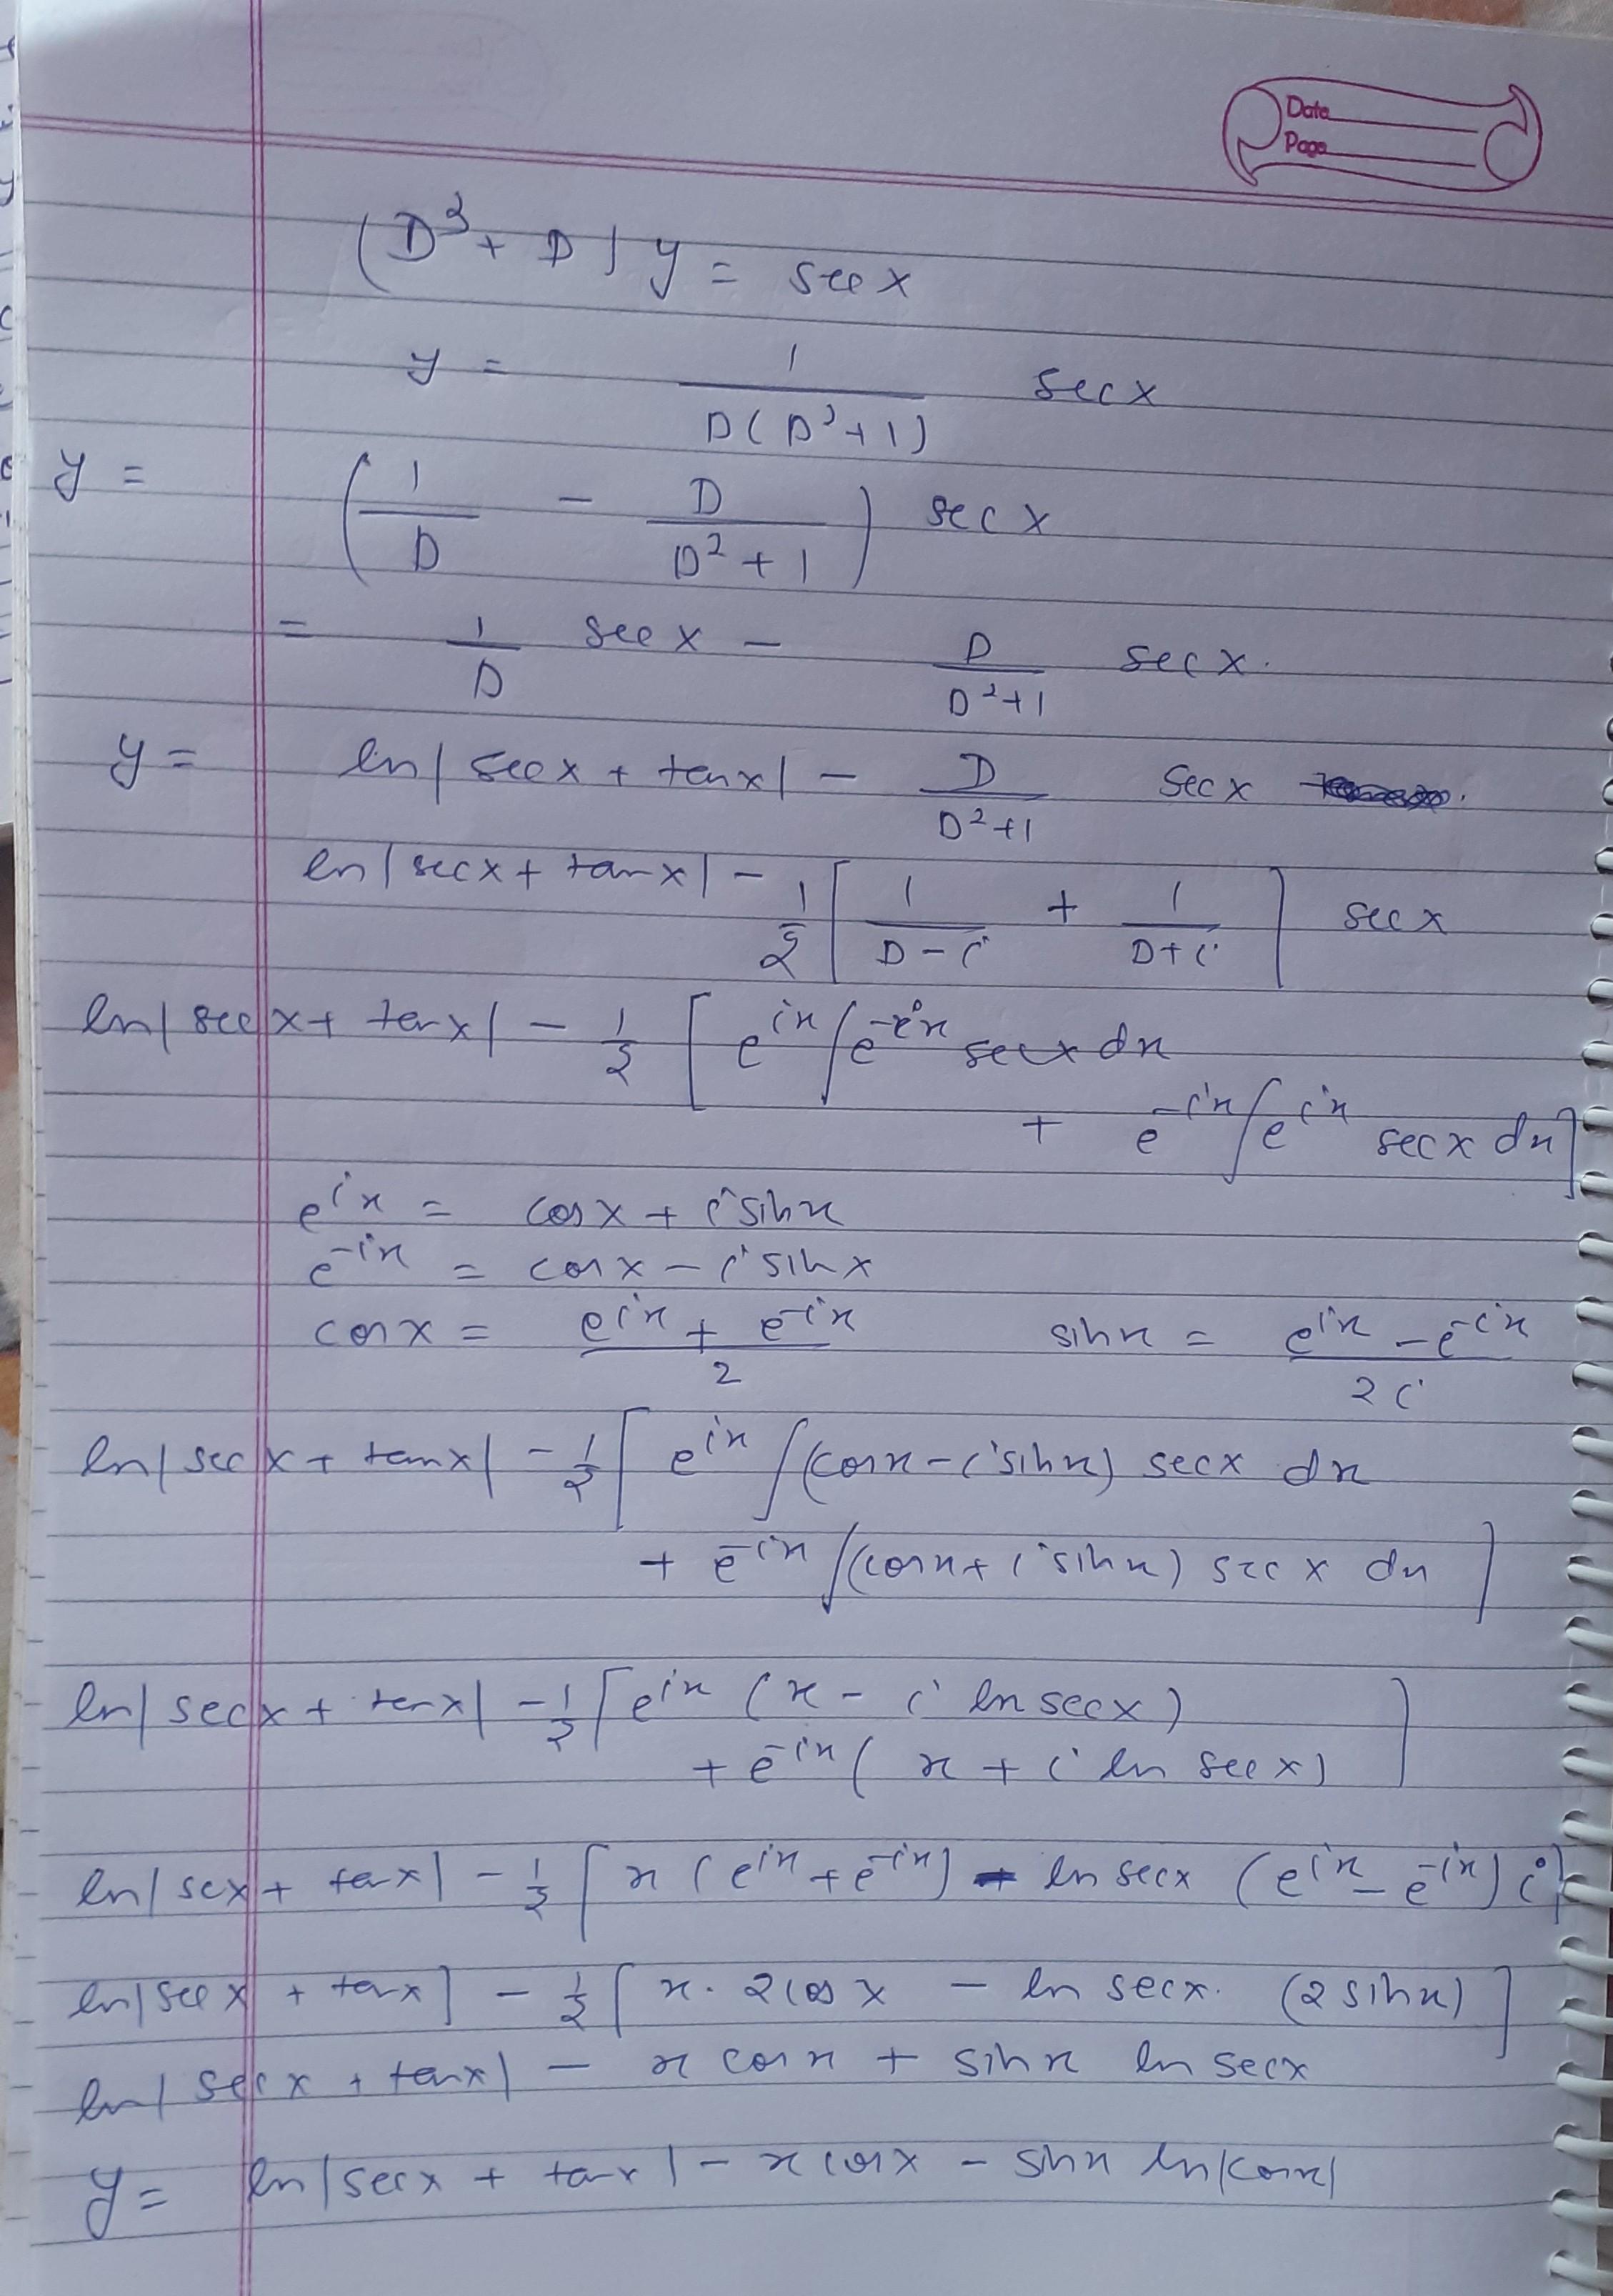 Date
Page
(D³ + D) y = sec x
y = 1/(D(D²+1)) sec x
y = (1/D - D/(D²+1)) sec x
= 1/D sec x - D/(D²+1) sec x.
y = ln|sec x + tan x| - D/(D²+1) sec x
ln|sec x + tan x| - 1/2 [1/(D-i) + 1/(D+i)] sec x
ln|sec x + tan x| - 1/2 [e^{ix} ∫e^{-ix} sec x dx
+ e^{-ix} ∫e^{ix} sec x dx]
e^{ix} = cos x + i sin x
e^{-ix} = cos x - i sin x
cos x = (e^{ix} + e^{-ix})/2 sin x = (e^{ix} - e^{-ix})/2i
ln|sec x + tan x| - 1/2 [e^{ix} ∫(cos x - i sin x) sec x dx
+ e^{-ix} ∫(cos x + i sin x) sec x dx]
ln|sec x + tan x| - 1/2 [e^{ix} (x - i ln sec x)
+ e^{-ix} (x + i ln sec x)]
ln|sex + tan x| - 1/2 [x (e^{ix} + e^{-ix}) - ln sec x (e^{ix} - e^{-ix}) i]
ln|sec x + tan x] - 1/2 [x. 2 cos x - ln sec x. (2 sin x)]
ln|sec x + tan x| - x cos x + sin x ln sec x
y = ln|sec x + tan x| - x cos x - sin x ln|cos x|